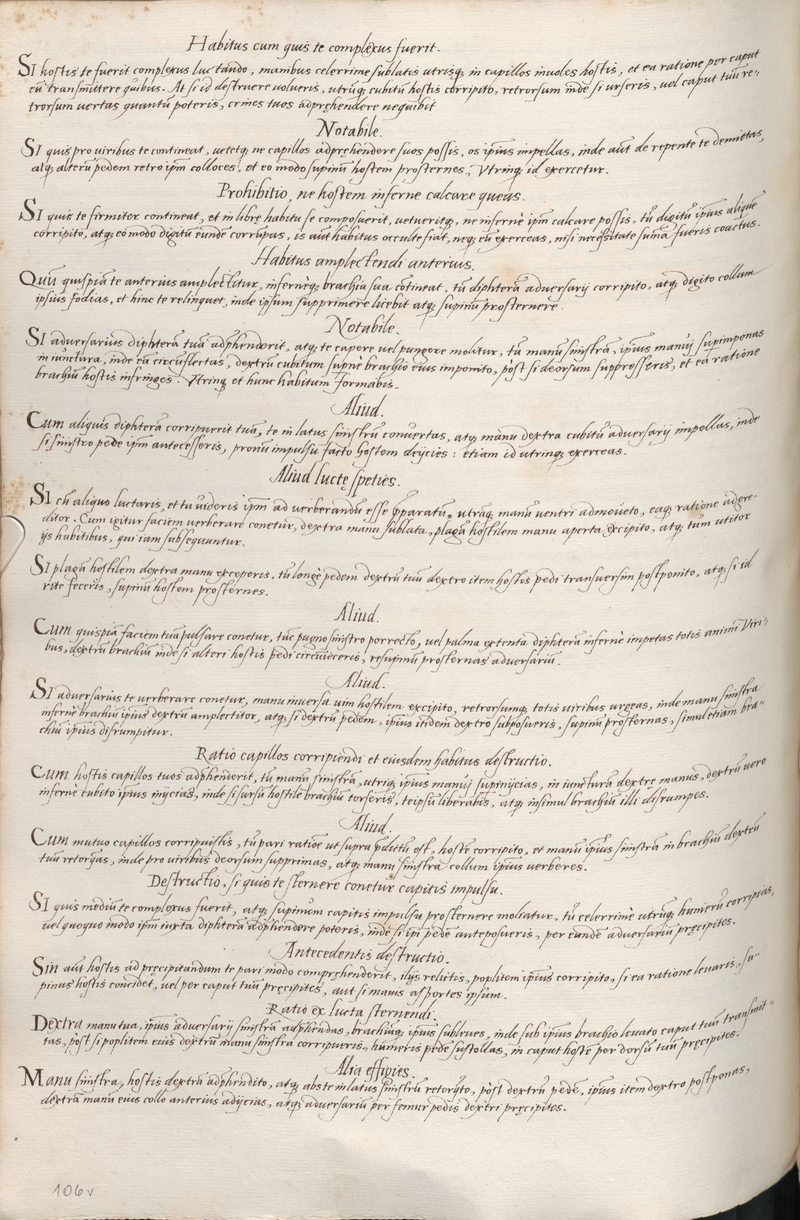 Habitus cum quis te complexus fuerit.
SI hostis te fuerit complexus luctando, manibus celerrime sublatis utrisq; in capillos inuoles hostis, et ea ratione per caput
eū transmittere quibis. At si id destruere volueris, utrūq; cubitū hostis corripito, retrorsum inde si urseris, vel caput tuū re-
trorsum vertas quantū poteris, crines tuos adprehendere nequibit
Notabile.
SI quis pro viribus te contineat, uetetq; ne capillos adpręhendere suos possis, os ipsius impellas, inde aut de repente te demittas,
atq; alterū pedem retro ipm colloces, et eo modo supinū hostem prosternes, Vtrinq; id exercetur.
Prohibitio, ne hostem inferne calcare queas.
SI quis te firmiter contineat, et in librę habitu se composuerit, uetueritq; ne infernè ipm calcare possis, tū digitū ipsius aliquē
corripito, atq; eo modo digitū eundē corrūpas, is aut habitus occulte fiat, neq; eū exerceas, nisi necessitate sūma fueris coactus.
Habitus amplectendi anterius.
Quū quispiā te anterius amplectitur, infernęq; brachia sua cōtineat, tū diphterā adversarij corripito, atq; digito collum
ipsius fodias, et hinc te relinquet, inde ipsum supprimere licebit atq; supinū prosternere.
Notabile.
SI adversarius diphterā tuā adphenderit, atq; te capere vel pungere molitur, tū manū sinistrā, ipsius manuj superimponas
in iunctura, inde eū circūflectas, dextrū cubitum supne brachio eius imponito, post si deorsum suppresseris, et ea ratione
brachiū hostis infringes. Vtrinq; et hunc habitum formabis.
Aliud.
Cum aliquis diphterā corripuerit tuā, te in latus sinistrū convertas, atq; manu dextra cubitū adversarij impellas, inde
si sinistro pede ipm antecesseris, pronū impulsu facto hostem deijcies: etiam id utrinq; exerceas.
Aliud luctę species.
SI cū aliquo luctaris, et tu uideris ipm ad verberandū esse pparatū, utraq; manu ventri admoueto, eaq; ratione adgre-
ditor. Cum igitur faciem verberare conetur, dextra manu sublata, plagā hostilem manu aperta excipito, atq; tum utitor
ijs habitibus, qui iam subsequuntur.
SI plagā hostilem dextra manu exceperis, tū longè pedem dextrū tuū dextro item hostis pedi transuersim postponito, atq; si id
rite feceris, supinū hostem prosternes.
Aliud.
Cum quispiā faciem tuā pulsare conetur, tūc pugno sinistro porrecto, vel palma extenta diphterā infernè impetas totis animi viri-
bus, dextrū brachiū inde si alteri hostis pedi circūieceris, resupinū prosternas adversariū.
Aliud.
SI adversarius te verberare conetur, manu inversa vim hostilem excipito, retrorsumq; totis viribus urgeas, inde manu sinistra
infernè brachiū ipsius dextrū amplectitor, atq; si dextrū pedem, ipsius itidem dextro subposueris, supinū prosternas, simul etiam bra-
chiū ipsius disrumpitur.
Ratio capillos corripiendi et eiusdem habitus destructio.
Cum hostis capillos tuos adphenderit, tū manū sinistrā, utriq; ipsius manuj superinijcias, in iunctura dextrę manus, dextrū vero
infernè cubito ipsius inijcias, inde si sursū hostilē brachiū torseris, teipsū liberabis, atq; insimul brachiū illi disrumpes.
Aliud.
Cum mutuo capillos corripuistis, tū pari ratiōe ut supra pdictū est, hostē corripito, et manū ipsius sinistrā in brachiū dextrū
tuū retorqeas, inde pro viribus deorsum supprimas, atq; manu sinistra collum ipsius verberes.
Destructio, si quis te sternere conetur capitis impulsu.
SI quis mediū te complexus fuerit, atq; supinum capitis impulsu prosternere moliatur, tū celerrimè utrūq; humerū corripias,
vel quoquo modo ipm iuxta diphterā adphendere poteris, inde si ipi pedē anteposueris, per eundē adversariū pręcipites.
Antecedentis destructio.
Sin aut hostis ad pręcipitandum te pari modo comprehenderit, ilijs relictis, poplitem ipsius corripito, si ea ratione leuaris, su-
pinus hostis concidet, vel per caput tuū pręcipites, aut si mauis asportes ipsum.
Ratio ex lucta sternendi.
Dextra manu tua, ipsius adversarij sinistrā adphendas, brachiūq; ipsius subleues, inde sub ipsius brachio leuato caput tuū transmit-
tas, post si poplitem eius dextrū manu sinistra corripueris, humeris pede sustollas, in caput hostē per dorsū tuū pręcipites.
Alia effigies.
Manu sinistra, hostis dextrā adphendito, atq; abs te in latus sinistrū retorqto, post dextrū pedē, ipsius item dextro postponas,
dextrā manū eius collo anterius adijcias, atq; adversariū per femur pedis dextri pręcipites.
106v